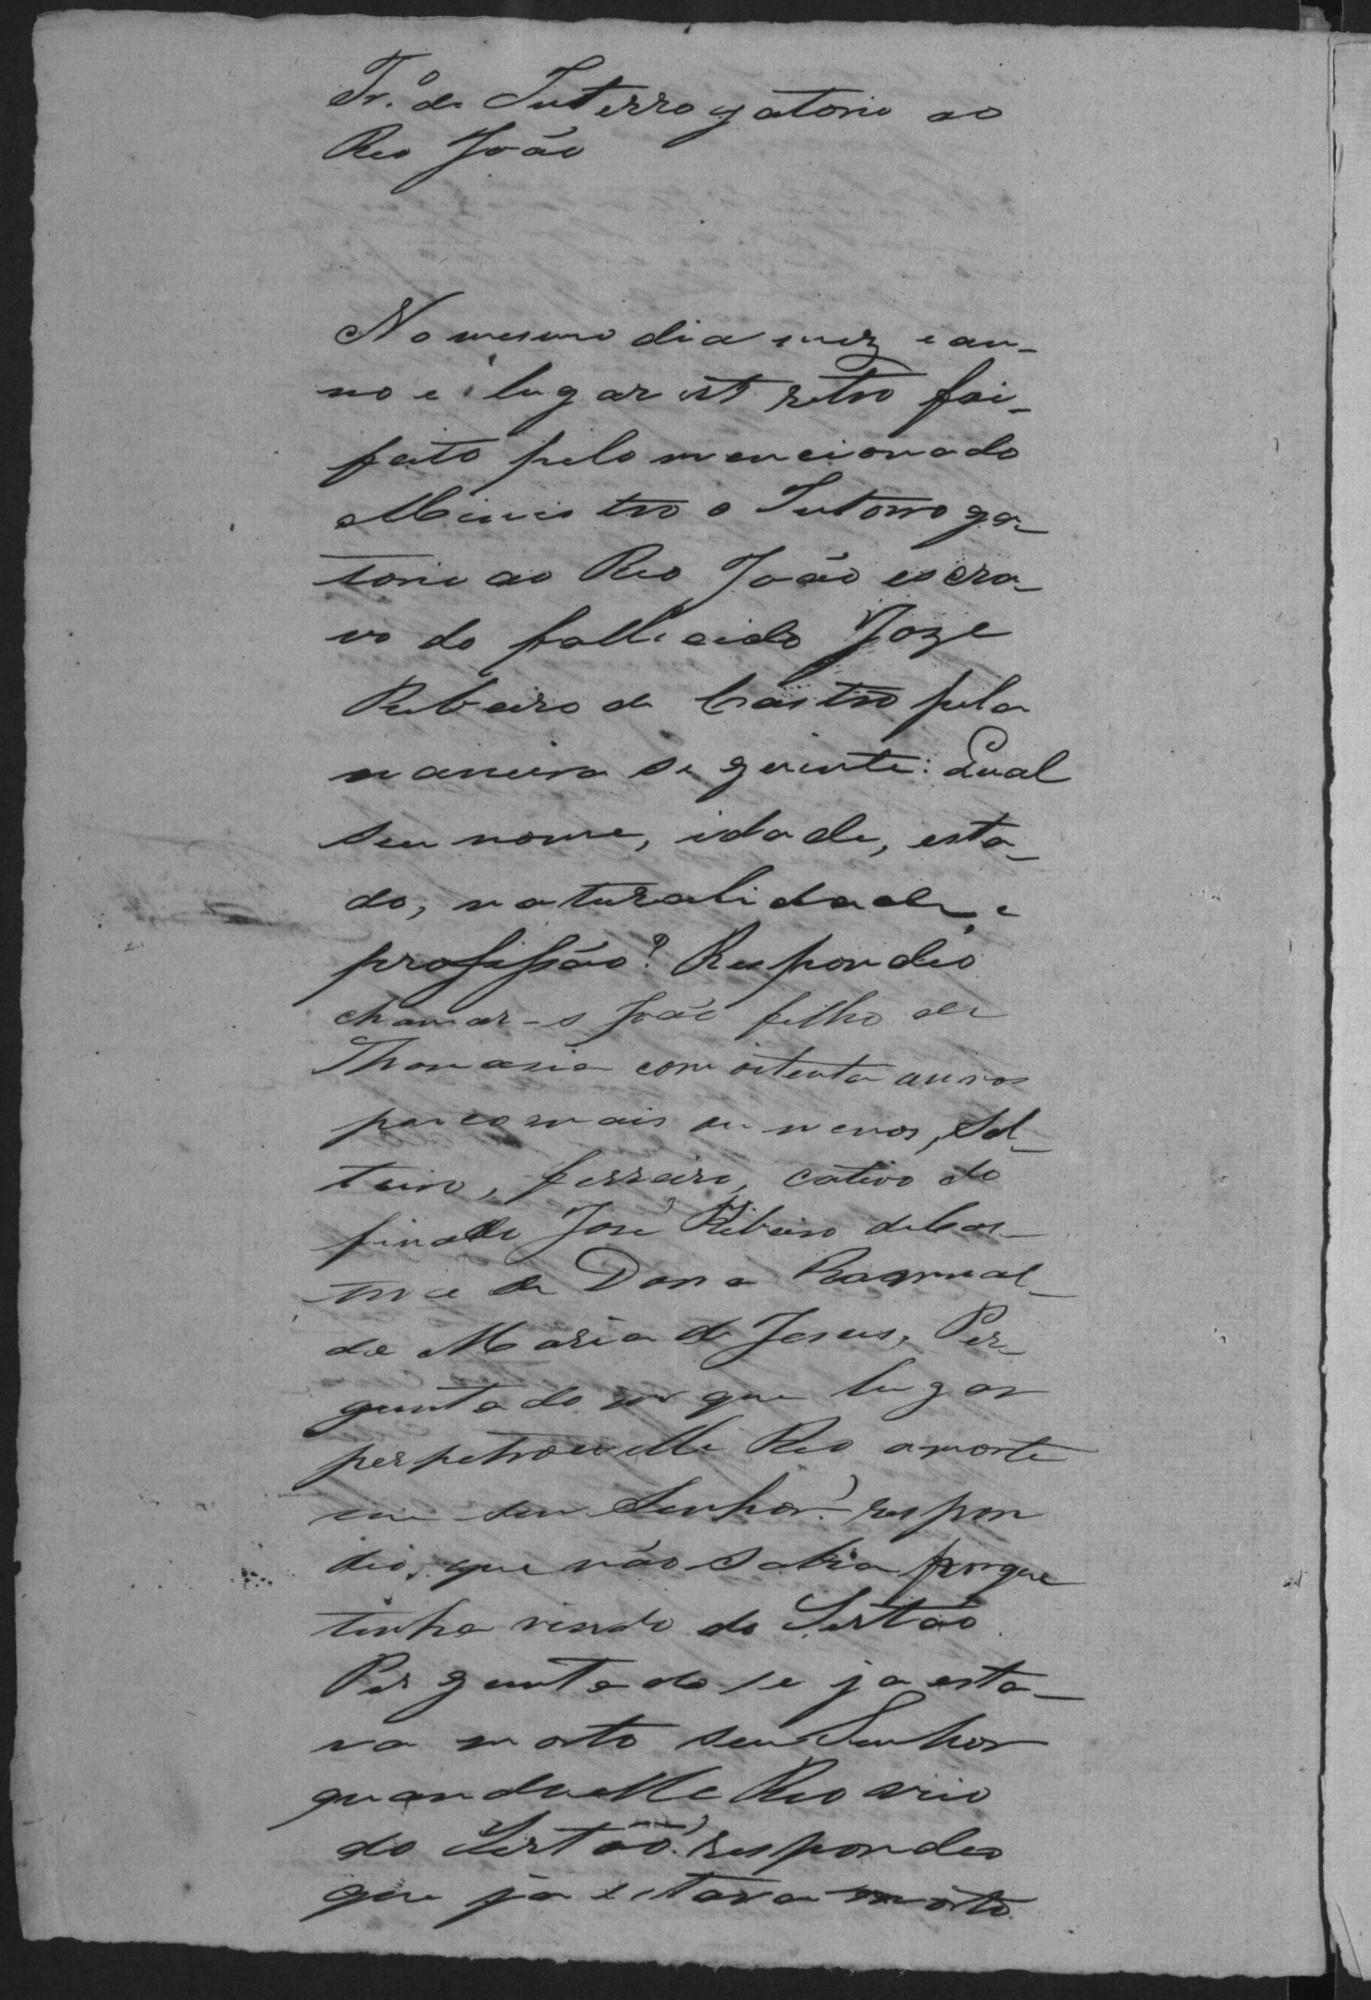 Tr.º de Interrogatorio ao
Reo João
No mesmo dia mez e an-
no e lugar ut retro foi
feito pelo mencionado
Ministro o Interroga-
torio ao Reo João escra-
vo do fallecido Joze
Ribeiro de Castro pela
maneira seguinte: Qual
seu nome, idade, esta-
do, naturalidade, e
profissão? Respondeo
chamar-s João filho de
Thomasia com oitenta annos
pouco mais ou menos, Sol-
teiro, ferreiro, cativo do
finado José Ribeiro de Cas-
tro e de Dona
de Maria de Jesus, Per-
guntado por que lugar
perpetrou elle Reo a morte
em seu Senhor? respon
deo, que não sabia porque
tinha vindo do Sertão.
Perguntado se ja esta-
va morto seu Senhor
quando elle Reo veio
do Sertão? respondeo
que ja estava morto.